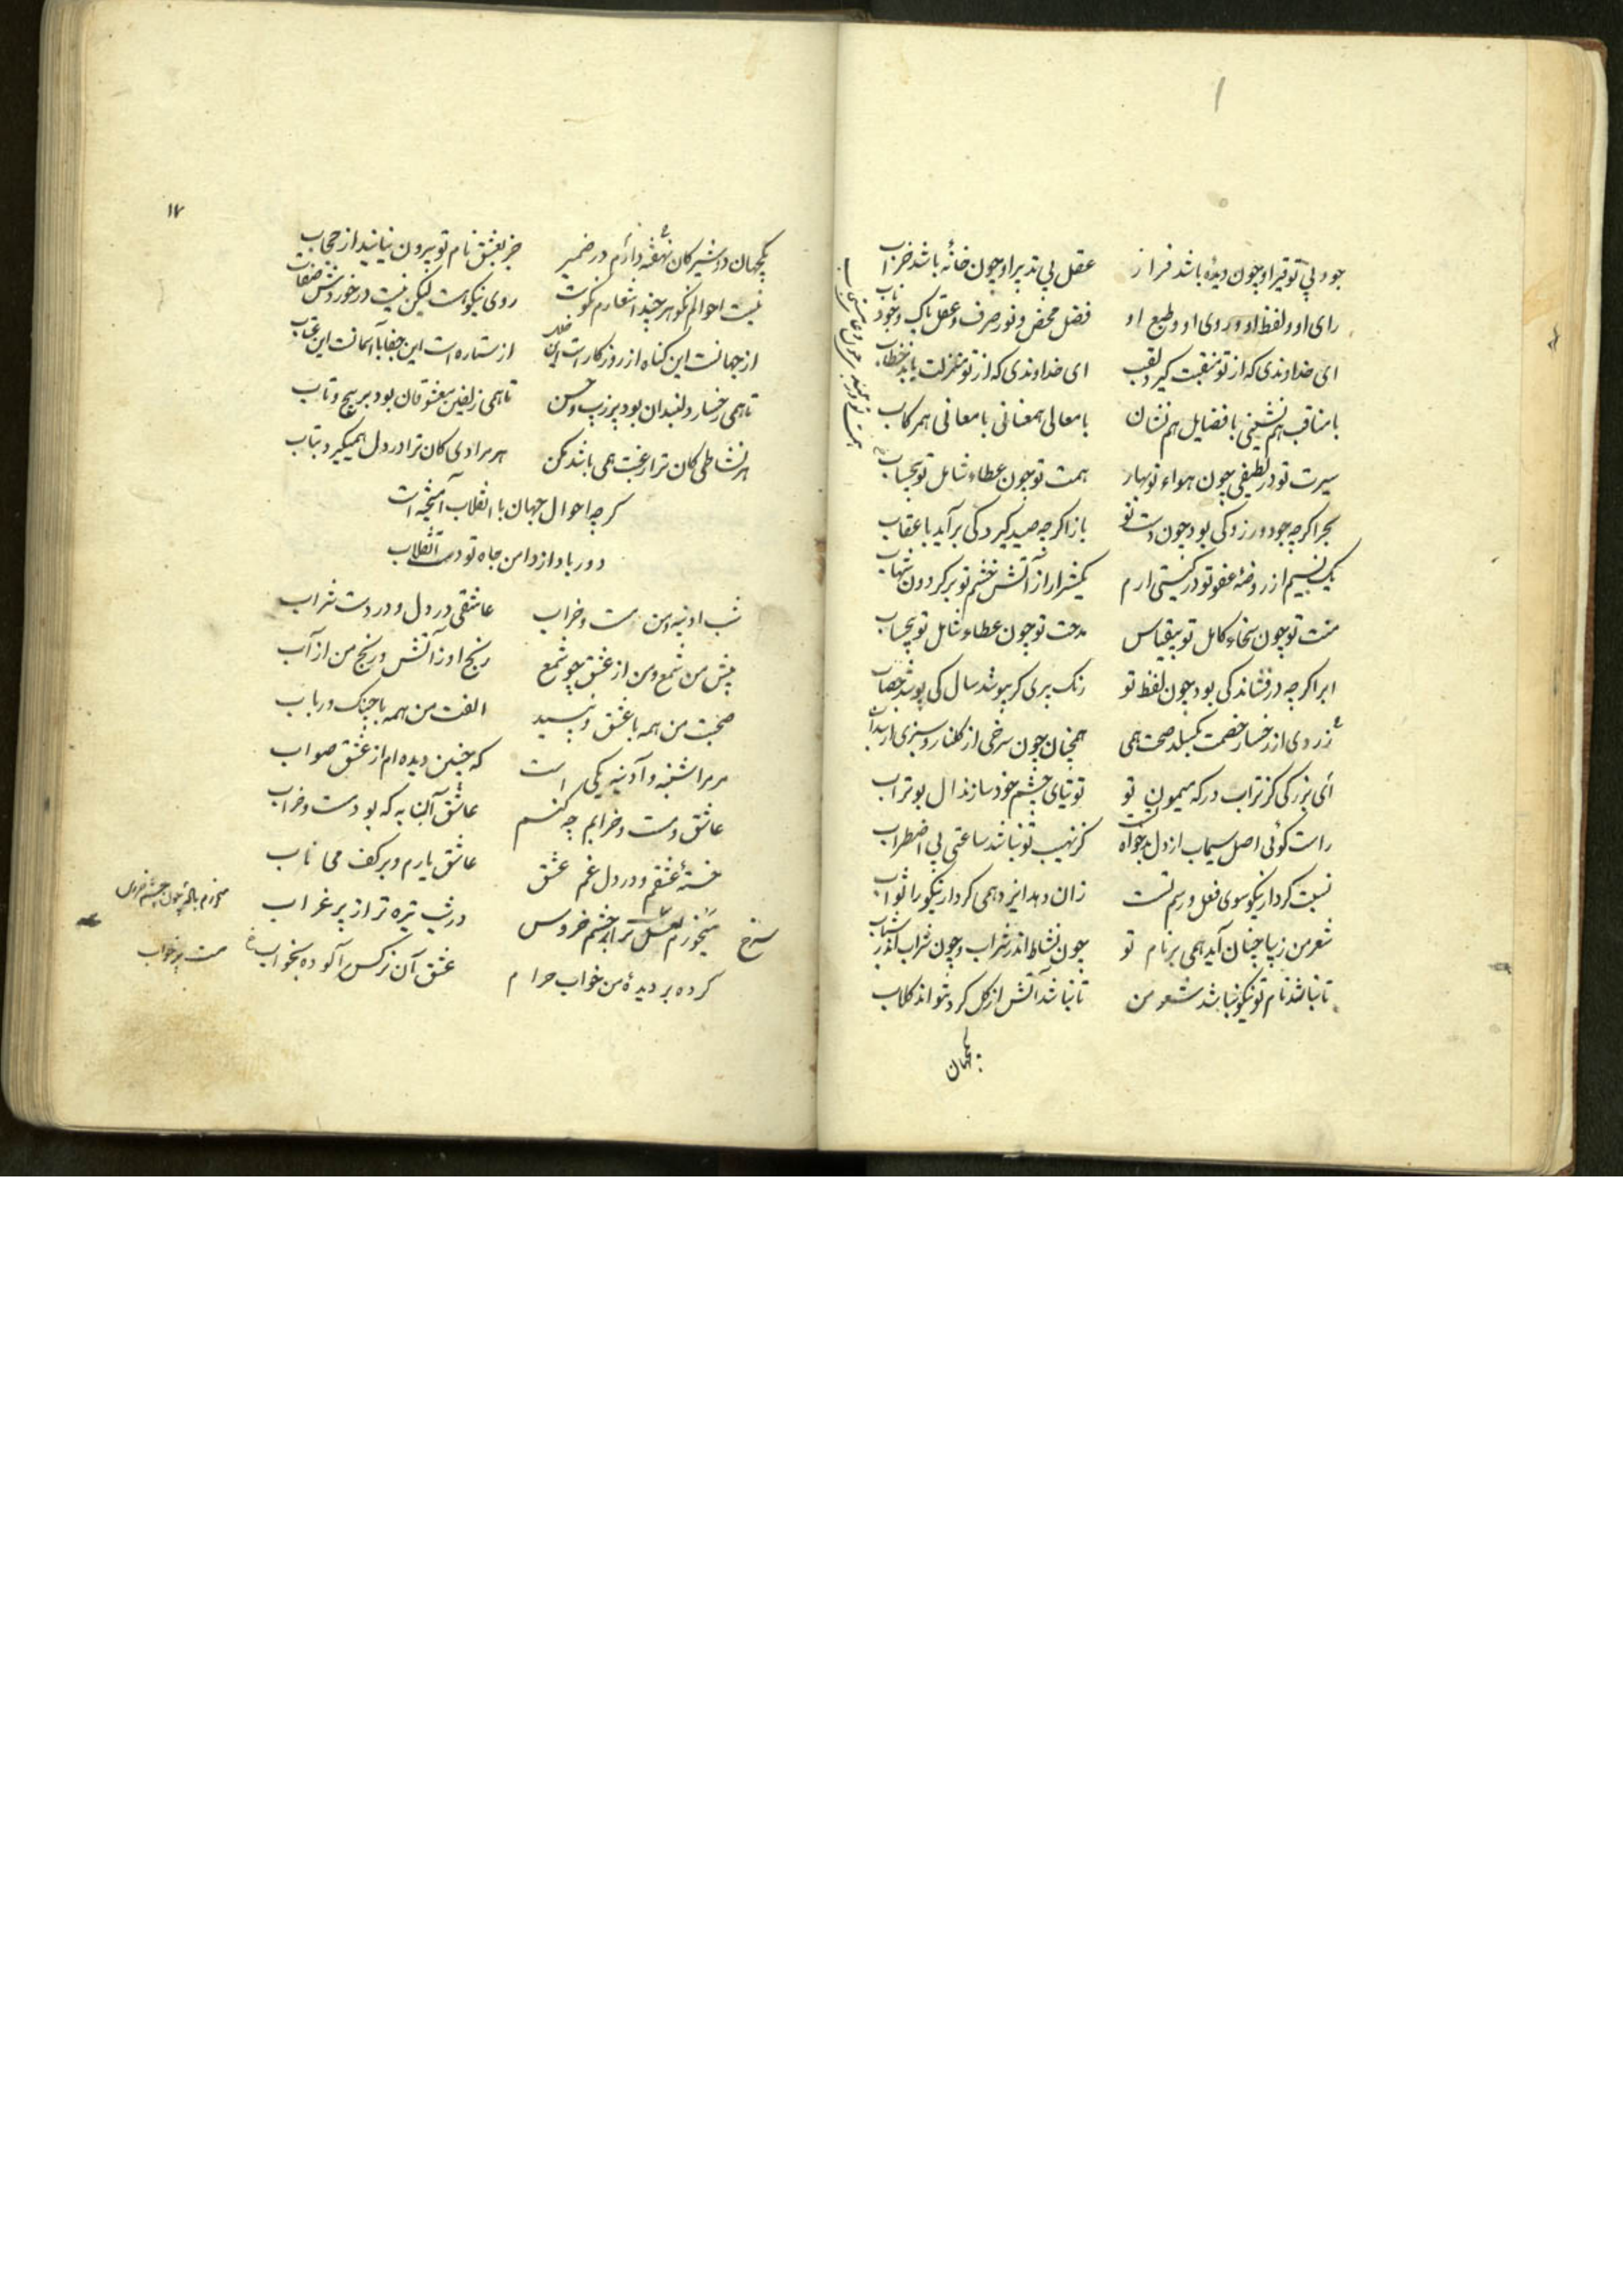 جود بی توقیر او چون دیده باشد فراز عقل بی تدبیر او چون خانه باشد خراب
رای او و لفظ او و روی او و طبع او فضل محض و نور صرف و عقل پاک و جود ناب
ای خداوندی که از تو منقبت گیرد لقب ای خداوندی که از تو منزلت یابد خطاب
با مناقب هم نشینی با فضایل هم نشان با معالی همعنانی با معانی همرکاب
سیرت تو در لطیفی چون هواء نوبهار همت تو چون عطاء شامل تو بیحساب
بحر اگرچه جود ورزد کی بود چون دست تو باز اگرچه صید گیرد کی برآید با عقاب
یک نسیم از روضه عفو تو در گیتی ارم یکشرار از آتش خشم تو بر گردون شهاب
منت تو چون سخاء کامل تو بیقیاس مدحت تو چون عطاء شامل تو بیحساب
ابر اگرچه درفشاند کی بود چون لفظ تو رنگ پیری گر بپوشد سال کی پوشد خضاب
زردی از رخسار خصمت نگسلد صحت همی همچنان چون سرخی از گلنار و سبزی از سداب
ای بزرگی کز تراب درگه میمون تو توتیای چشم خود سازند ال بوتراب
راست گوئی اصل سیماب از دل بدخواه تست کز نهیب تو نباشد ساعتی بی اضطراب
نسبت کردار نیکو سوی فعل و رسم تست زان دهد ایزد همی کردار نیکو را ثواب
شعر من زیبا چنان آید همی بر نام تو چون نشاط اندر شراب و چون شراب اندر شباب
تا نباشد نام تو نیکو نباشد شعر من تا نباشد آتش از گل کرد نتواند گلاب
یکجهان
۱۷
یکجهان دوشیزگان نهفته دارم در ضمیر جز بعشق نام تو بیرون نیایند از حجاب
نیست احوالم نکو هر چند اشعارم نکوست روی نیکو هست لیکن نیست در خوردش نقاب
از جهانست این گناه از روزگار است این خلل از ستاره است این جفا یا آسمانست این عتاب
تا همی رخسار دلبندان بود پر زیب و حسن تا همی زلفین معشوقان بود پر پیچ و تاب
هر نشاطی کان ترا رغبت همی باشد بکن هر مرادی کان ترا در دل همیگیرد بتاب
گرچه احوال جهان با انقلاب آمیخته است
دور باد از دامن جاه تو دست انقلاب
شب ادینه و من مست و خراب عاشقی در دل و در دست شراب
پیش من شمع و من از عشق چو شمع رنج او ز آتش و رنج من از آب
صحبت من همه با عشق و نبید الفت من همه با چنگ و رباب
مر مرا شنبه و آدینه یکی است که چنین دیده ام از عشق صواب
عاشق و مست و خرابم چه کنم عاشق آن به که بود مست و خراب
خسته عشقم و در دل غم عشق عاشق یارم و بر کف می ناب
میخورم لعل تر از چشم خروس در شب تیره تر از پر غراب
سرخ
کرده بر دیده من خواب حرام عشق آن نرگس آلوده بخواب
مست پر خواب